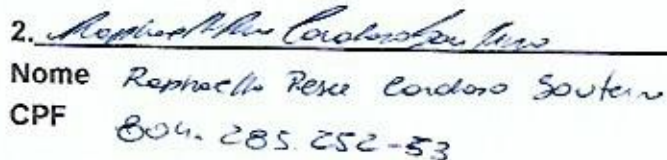 2.
Nome Raphaella Pesce Cardoso Soutero
CPF 804.285.252-53